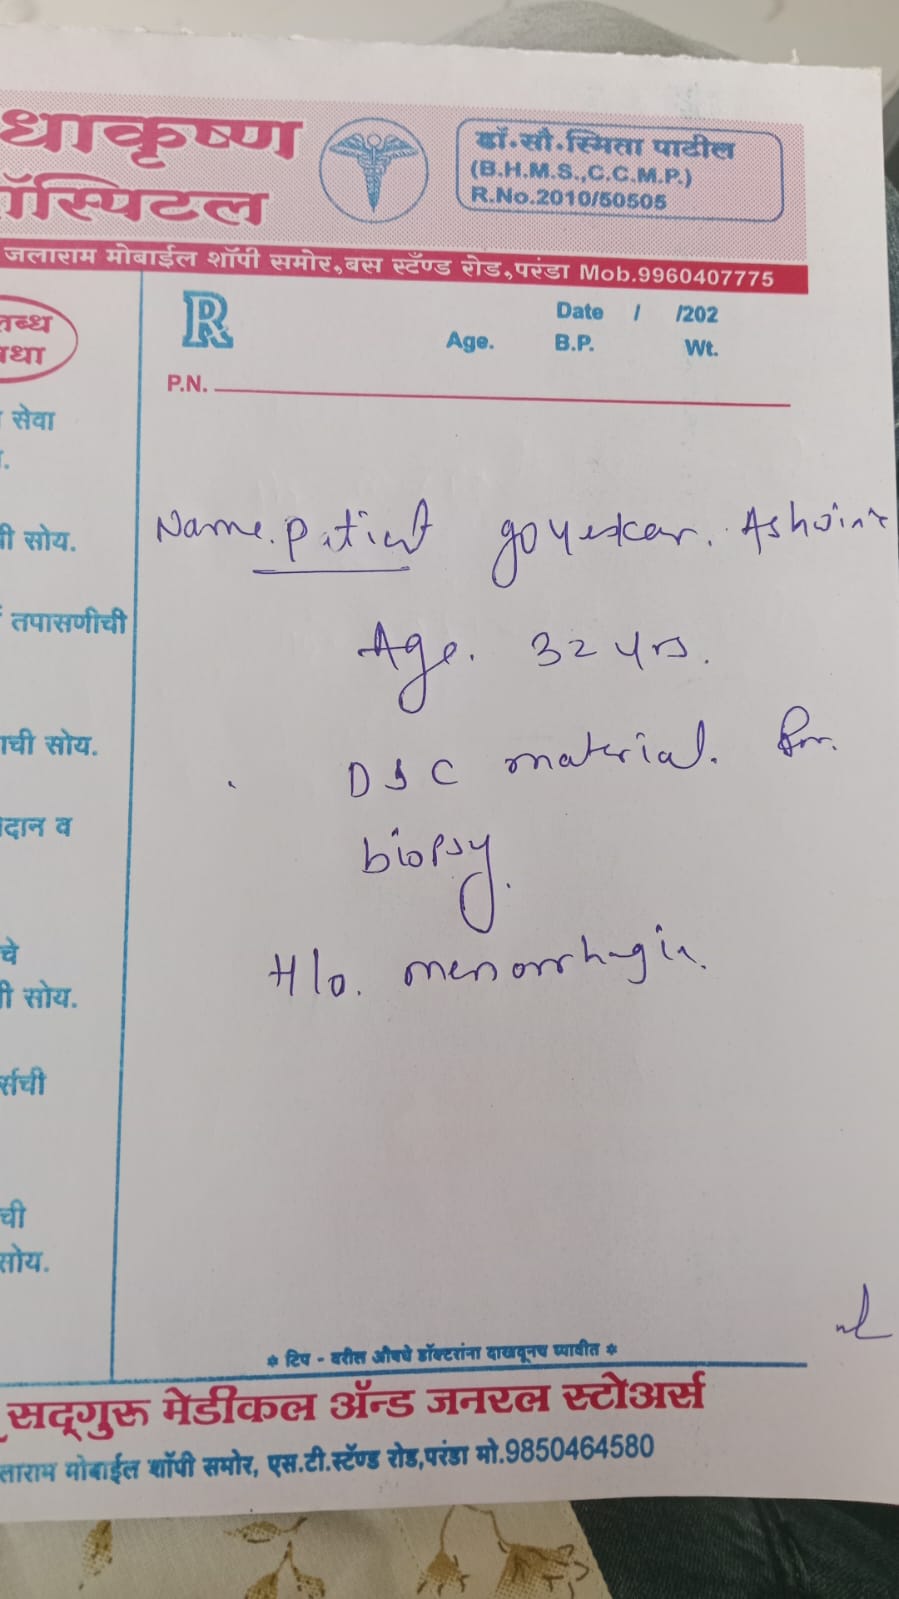 धाकृष्ण
ॉस्पिटल
डॉ.सौ.स्मिता पाटील
(B.H.M.S.,C.C.M.P.)
R.No.2010/50505
जलाराम मोबाईल शॉपी समोर,बस स्टॅण्ड रोड,परंडा Mob.9960407775
R
Date / /202
Age. B.P. Wt.
P.N.
सेवा
ी सोय.
तपासणीची
ाची सोय.
दान व
चे
ी सोय.
र्सची
ची
सोय.
Name. patient goyekar. Ashwini
Age. 32 yrs.
D&C material. for
biopsy.
H/o. menorrhagia.
* टिप - वरील औषधे डॉक्टरांना दाखवूनच घ्यावीत *
सद्गुरू मेडीकल ॲन्ड जनरल स्टोअर्स
लाराम मोबाईल शॉपी समोर, एस.टी.स्टॅण्ड रोड,परंडा मो.9850464580